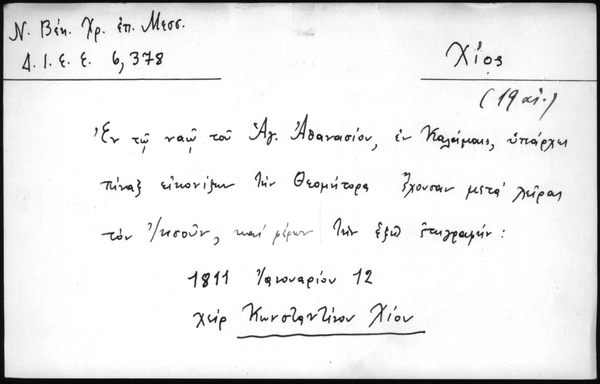 Ν. Βέη. Χρ. ἐπ. Μεσσ.
Δ. Ι. Ε. Ε. 6, 378
Χῖος
(19 αἰ.)
Ἐν τῷ ναῷ τοῦ Ἁγ. Ἀθανασίου, ἐν Καλάμαις, ὑπάρχει
πίναξ εἰκονίζων τὴν Θεομήτορα ἔχουσαν μετὰ χεῖρας
τὸν Ἰησοῦν, καὶ φέρων τὴν ἑξῆς ἐπιγραφήν:
1811 Ἰανουαρίου 12
χεὶρ Κωνσταντίνου Χίου